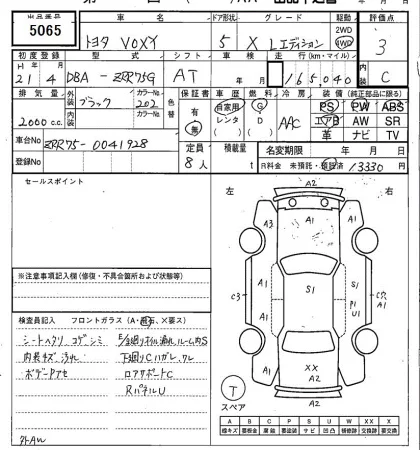 出品番号 車名 ドア形状 グレード 駆動 評価点
5065 トヨタ VOXY 5 X Lエディション 2WD 4WD 3
初度登録 型式 シフト 車検 走行(km・マイル) 内装
H 年 月 21 4 DBA-ZRR75G AT 年 月 165,040 C
排気量 外装 色 カラーNo. 色替 保証書 車歴 燃料 冷房 装備 (純正部品に限る)
2000 c.c. ブラック 202 有 無 自家用 レンタ G D AAC PS PW ABS
エアB AW SR
革 ナビ TV
車台No ZRR75-0041928 定員 積載量 名変期限 年 月 日
登録No 8人 t R料金 未預託・預託済 13330 円
セールスポイント
左 右
A2
A3 A1 A1
A1 S1 A1
C3 P1 U1 C穴 A1
A1 A1
XX
A2
A1
A2
※注意事項記入欄(修復・不具合箇所および状態等)
検査員記入 フロントガラス(A・飛石、X要ス)
シートヘタリ コゲ シミ
内装キズ、汚れ 下廻りCハガレ、ワレ
ボデーPアセ ロアサポートC
RパネルU
外AW
T
スペア
A B W C P S U W XX X